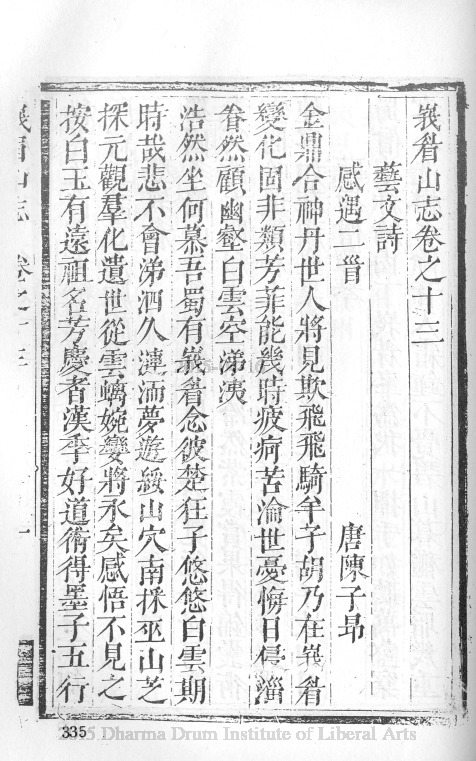 峩眉山志卷之十三
藝文詩
感遇二首
唐陳子昂
金鼎合神丹世人將見欺飛飛騎羊子胡乃在峩眉
變化固非類芳菲能幾時疲疴苦淪世憂悔日侵淄
眷然顧幽壑白雲空涕洟
浩然坐何慕吾蜀有峩眉念彼楚狂子悠悠白雲期
時哉悲不會涕泗久漣洏夢遊綏山穴南採巫山芝
探元觀羣化遺世從雲螭婉孌將永矣感悟不見之
按白玉有遠祖名芳慶者漢季好道術得墨子五行
峩眉山志 卷之十三 一
335
5 Dharma Drum Institute of Liberal Arts